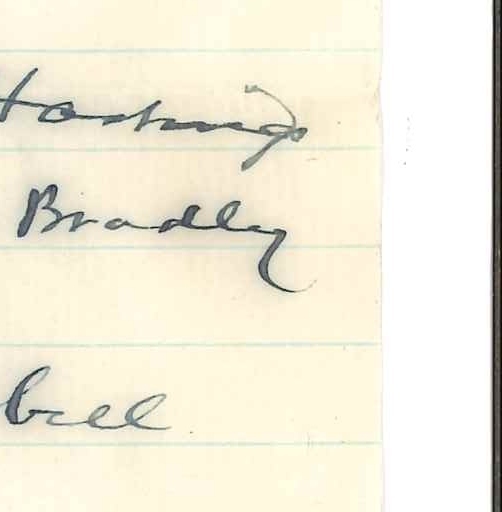 Hastings
Bradley
bell